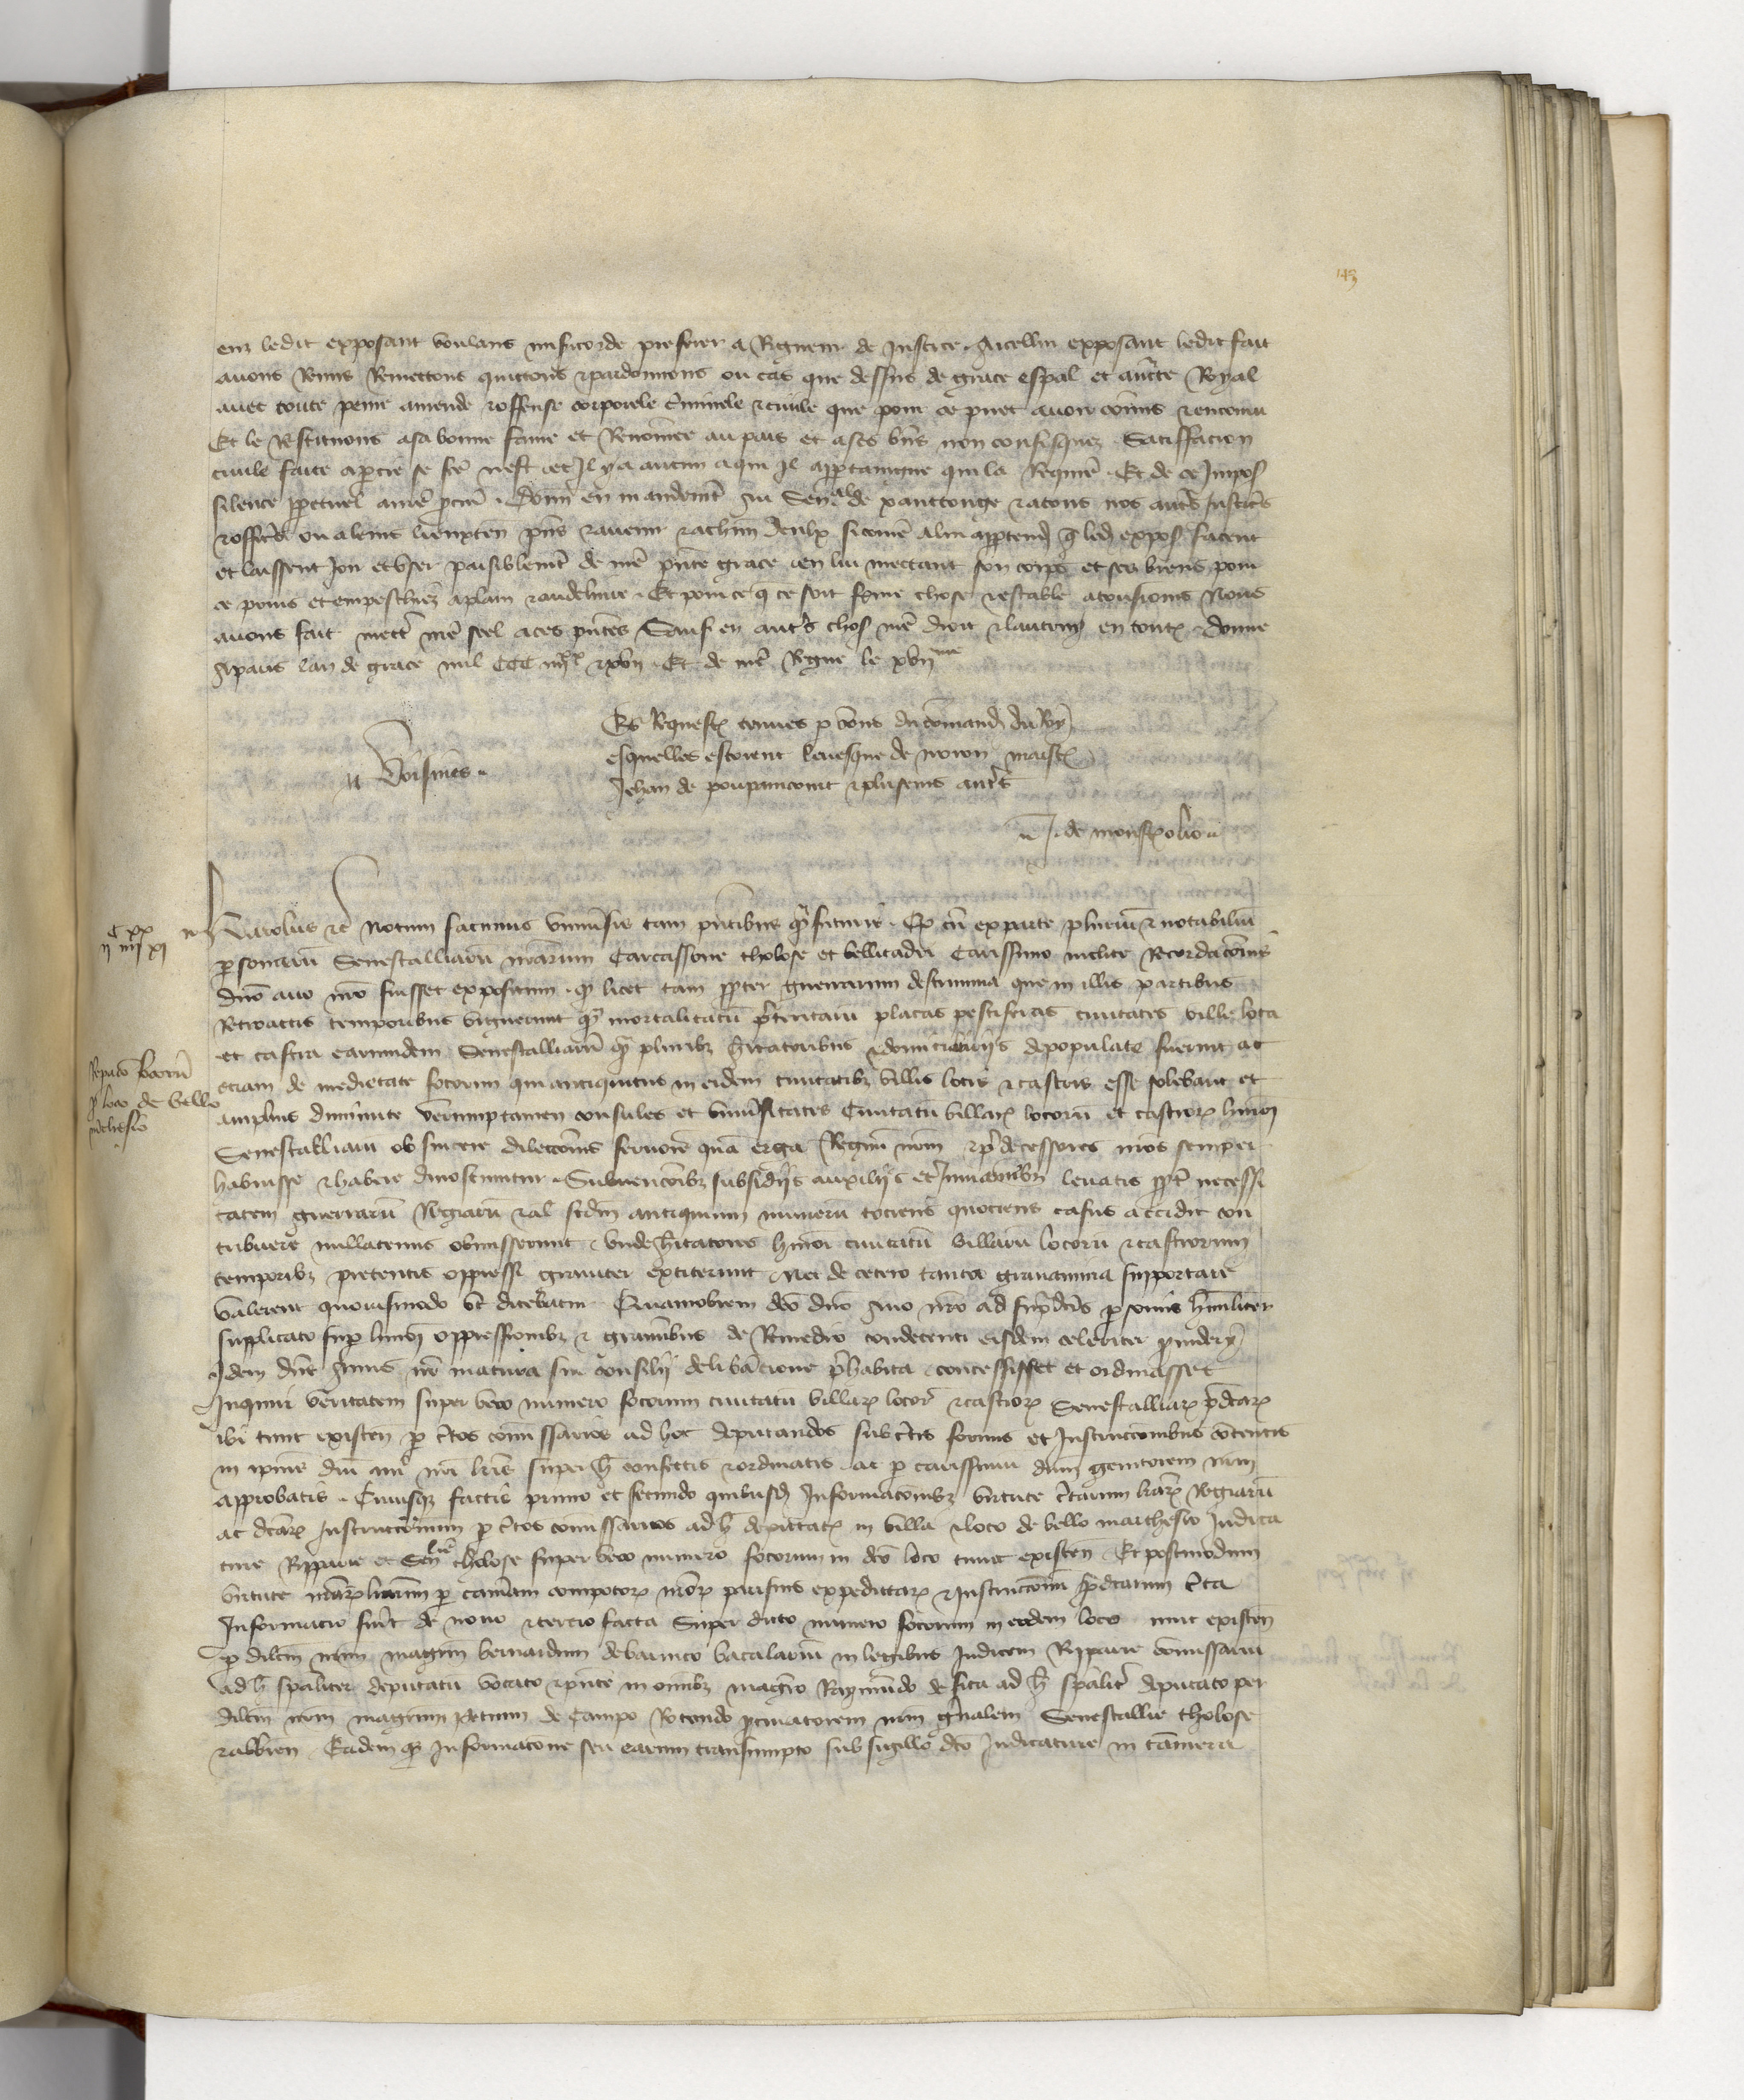 143
enz ledit exposant voulans misericorde preferer a Rigueur de Justice. Aicellui exposant ledit fait
avons Remis Remettons quittons et pardonnons ou cas que dessus de grace espal et aucte Royal
avec toute peine amende et offense corporele criminele et civile que pour ce puet avoir comis et encouru
Et le Restituons a sa bonne fame et Renomee au pais et a ses bns non confisquez. Satisfacion
civile faite a partie se fce nest et Il y a aucun a qui Il appartiengne qui la Requiere. Et de ce Impos
silence ppetuel a nre pcur. Donn en mandemt au Senal de Xanctonge et a touz nos autrs Justicrs
et officrs ou a leurs lieuxten pns et avenir et a chun deulx si come a lui apptendra q led expos facent
et laissent Joir et user paisiblemt de nre pnte grace en lui mectant son corps et ses biens pour
ce prins et empeschiez a plain et au delivre. Et pour ce q ce soit ferme chose et estable a tousiours Nous
avons fait mettr nre seel a ces pntes Sauf en autrs chos nre droit et lautruy en toutes. Donne
A paris lan de grace mil CCC iiijxx et xvij. Et de nre Regne le xvijme
Es Requestes tenues p vous du comand du Roy
esquelles estoient levesque de noion maistre
Jehan de poupaincourt et plusieurs autrs
Voisines.
J. de monsterolio
Karolus etc Notum facimus universis tam pntibus q futuris. Q cu ex parte plurium et notabilium
CC iiijxx xi
personaru Senescalliaru nrarum Carcassone tholose et bellicadri Carissimo inclite Recordacionis
dno avo nro fuisset expositum. q licet tam propter guerrarum discrimina que in illis partibus
Retroactis temporibus viguerunt q mortalitatu preteritaru plagas pestiferas civitates ville loca
et castra earumdem Senescalliaru q pluribz habitatoribus et domiciliis depopulate fuerint ac
Reparo focoru
p loco de bello
mchesio
etiam de medietate focorum qui antiquitus in eisdem civitatibz villis locis et castris esse solebant et
amplius diminute verumptamen consules et universitates Civitatu villarz locoru et castrorz hmoi
Senescalliaru ob sincere dilectionis fervore qua erga Regnu nrm et predecessores nros semper
habuisse et habere dinoscuntur. Subvencoibz subsidiis auxiliis et Juvaminibz levatis ppt necessi
tatem guerraru Regiaru et al scdm antiquum numeru tociens quociens casus accidit con
tribuere nullatenus obmisserunt. Unde habitatores hmoi civitatu villaru locoru et castrorum
temporibz preteritis oppressi graviter extiterunt. Nec de cetero tanta gravamina supportare
valerent quovismodo ut dicebatur. Quamobrem dco dno avo nro ad supdcis personis humiliter
supplicato sup hmoi oppressionibz et gravibus de Remedio condecenti eisdem celeriter provideri
Idem dns Avus nr matura sui consilii deliberacione prehabita concessisset et ordinasset
Inquiri veritatem super vero numero focorum civitatu villarz locorz et castrorz Senescalliarz predictarz
ibi tunc existen p certos comissarios ad hoc deputandos sub certis formis et Instruccionibus contentis
in ipius dni avi nri lris super hoc confectis et ordinatis. ac p carissimu dnm genitorem nrm
approbatis. Cumqz factis primo et secundo quibusd Informacoibz virtute certarum lrarz Regiaru
ac dictarz Instruccionum p certos comissarios ad hoc deputatos in villa et loco de bello marchesio Judica
ture Ripparie et Senlie tholose super vero numero focorum in dco loco tunc existen. Et postmodum
virtute nrarz lrarum p cameram compotorz nrorz parisius expeditarz et Instruccionu predictarum certa
Informacio fuit de novo et tercio facta Super dicto numero focorum in eodem loco nunc existen
p dilcm nrm magrm bernardum de barinco bacalariu in legibus Judicem Ripparie comissariu
ad hoc spaliter deputatu vocato et pnte in omibz magro Raymundo de fica ad hoc spalitr deputato per
dilcm nrm magrum petrum de Campo Rotundo pcuratorem nrm gnalem Senescallie tholose
et albien. Eadem qz Informacone seu earum transumpto sub sigillo dce Judicature in camera